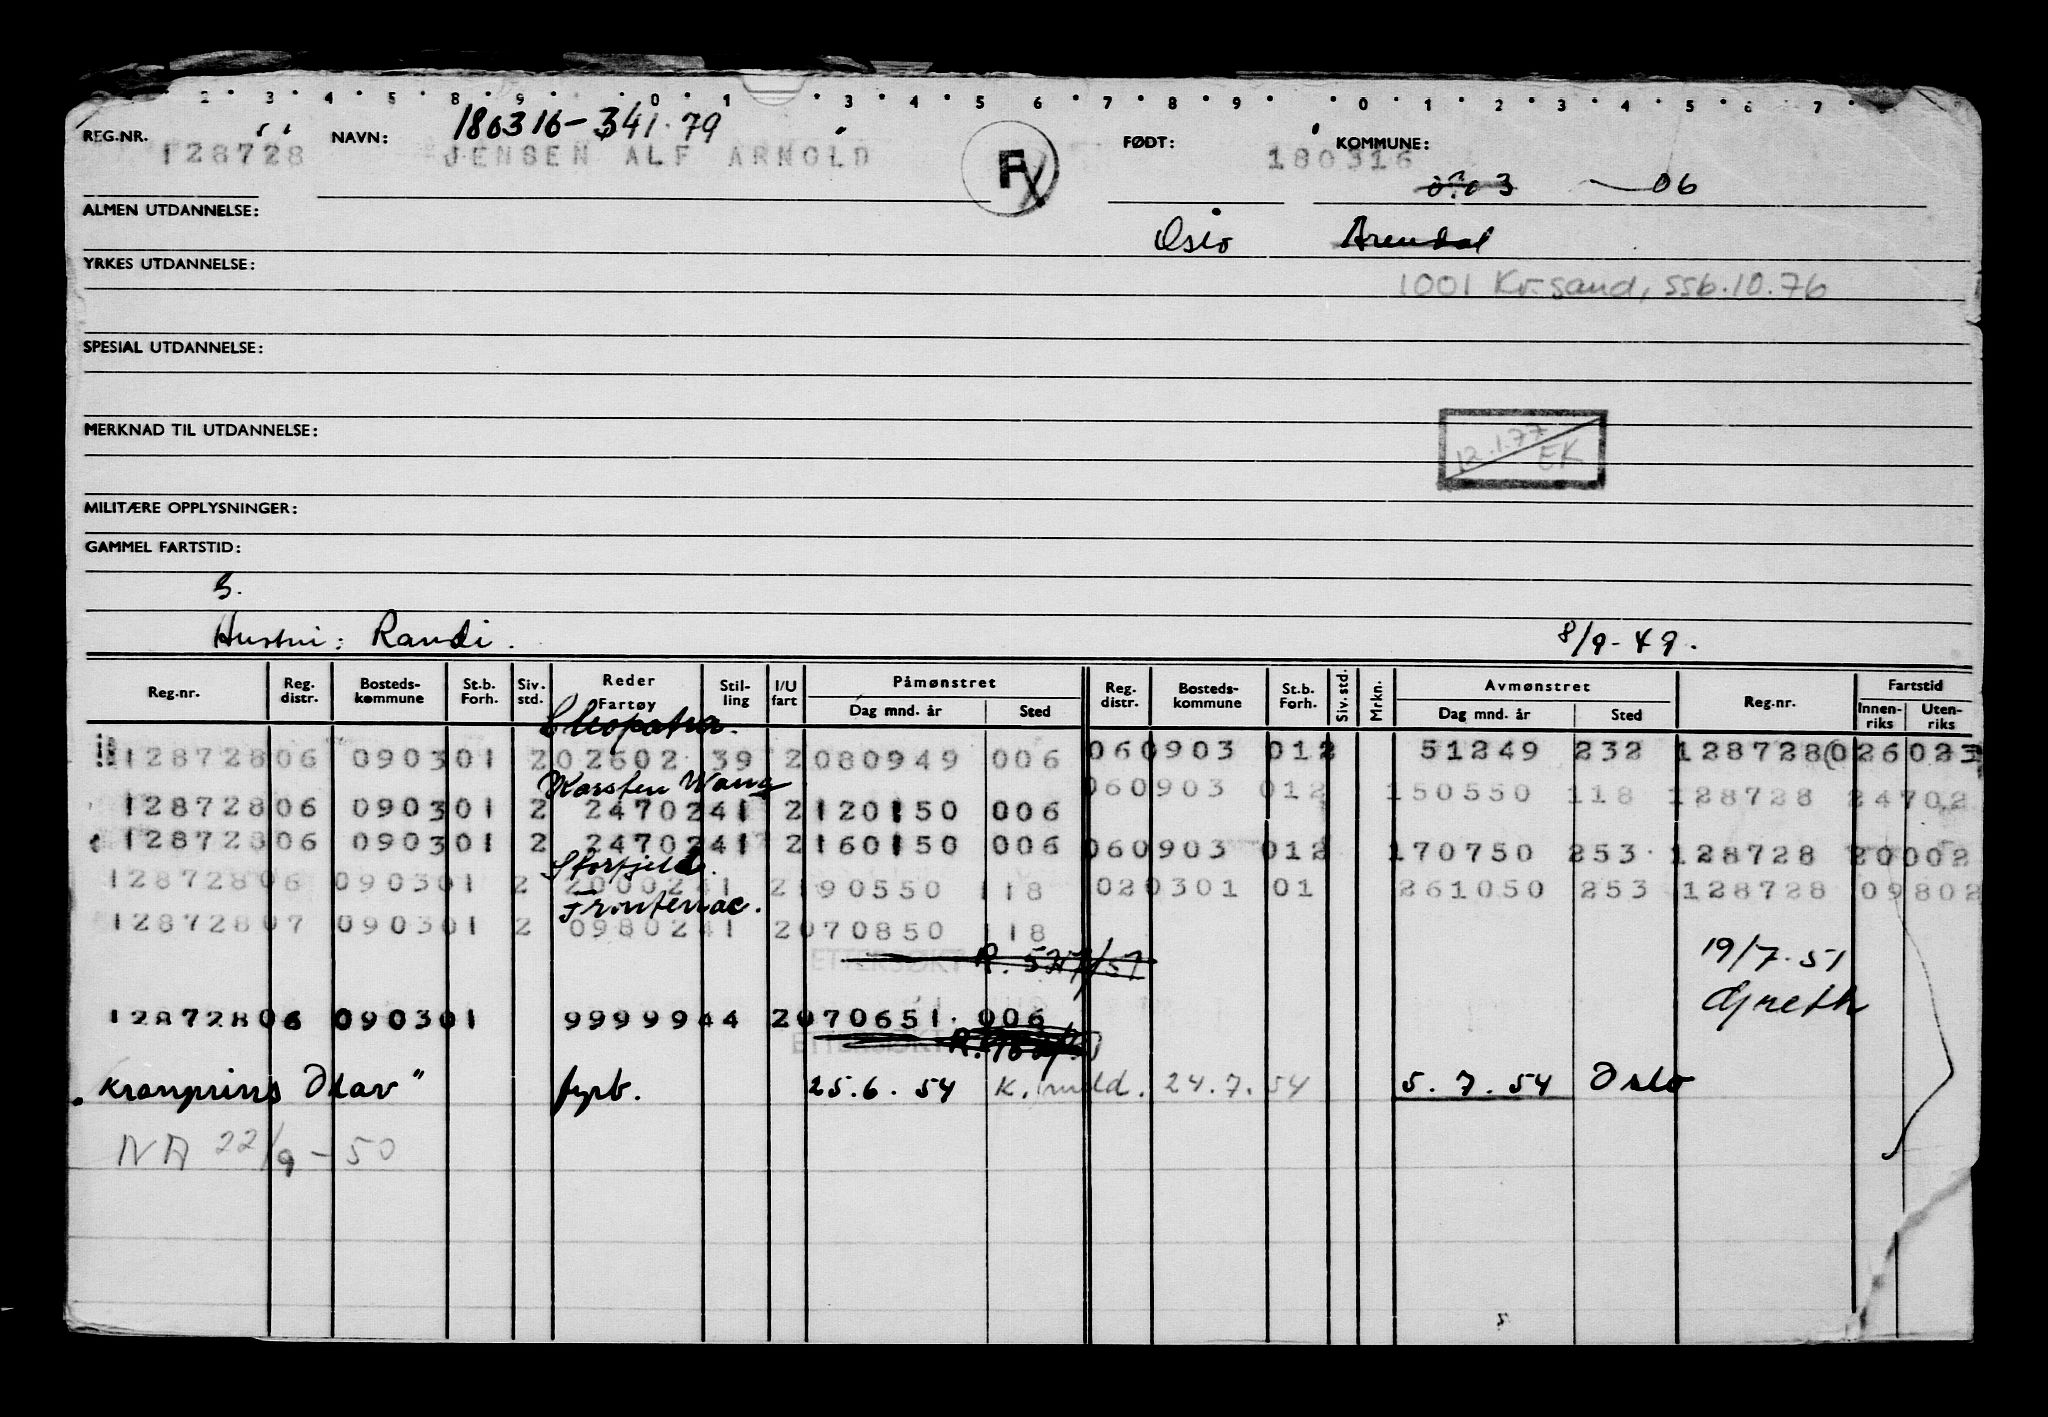 2 3 4 5 8 9 0 1 3 4 5 6 7 8 9 0 1 2 3 4 5 6 7
186316-341.79
REG.NR. 128728 NAVN: JENSEN ALF ARNOLD F FØDT: 180316 KOMMUNE:
06
ALMEN UTDANNELSE:
Oslo Arendal
YRKES UTDANNELSE:
1001 Kr.sand, ssb.10.76
SPESIAL UTDANNELSE:
MERKNAD TIL UTDANNELSE:
12.1.77 EK
MILITÆRE OPPLYSNINGER:
GAMMEL FARTSTID:
3.
Hustru: Randi. 8/9-49.
Reg.nr. Reg. distr. Bosteds-kommune St.b. Forh. Siv. std. Reder Fartøy Stil-ling I/U fart Påmønstret Dag mnd. år Sted Reg. distr. Bosteds-kommune St.b. Forh. Siv.std. Mrkn. Avmønstret Dag mnd. år Sted Reg.nr. Fartstid Innen-riks Uten-riks
Cleopatra.
128728 06 0903 01 2 02602 39 2 080949 006 06 0903 01 2 51249 232 128728 02602
Karsten Wang
128728 06 0903 01 2 24702 41 2 120150 006 06 0903 01 2 150550 118 128728 24702
128728 06 0903 01 2 24702 41 2 160150 006 06 0903 01 2 170750 253 128728 20002
Storfjeld.
128728 06 0903 01 2 20002 41 2 190550 118 02 0301 01 261050 253 128728 09802
Frontenac.
128728 07 0903 01 2 09802 41 2 070850 118
ETTERSØKT R. 19/7.51
Greth
128728 06 0903 01 99999 44 2 070651 006
ETTERSØKT
"Kronprins Olav" fyrb. 25.6.54 24.7.54 5.7.54 Oslo
NA 22/9-50